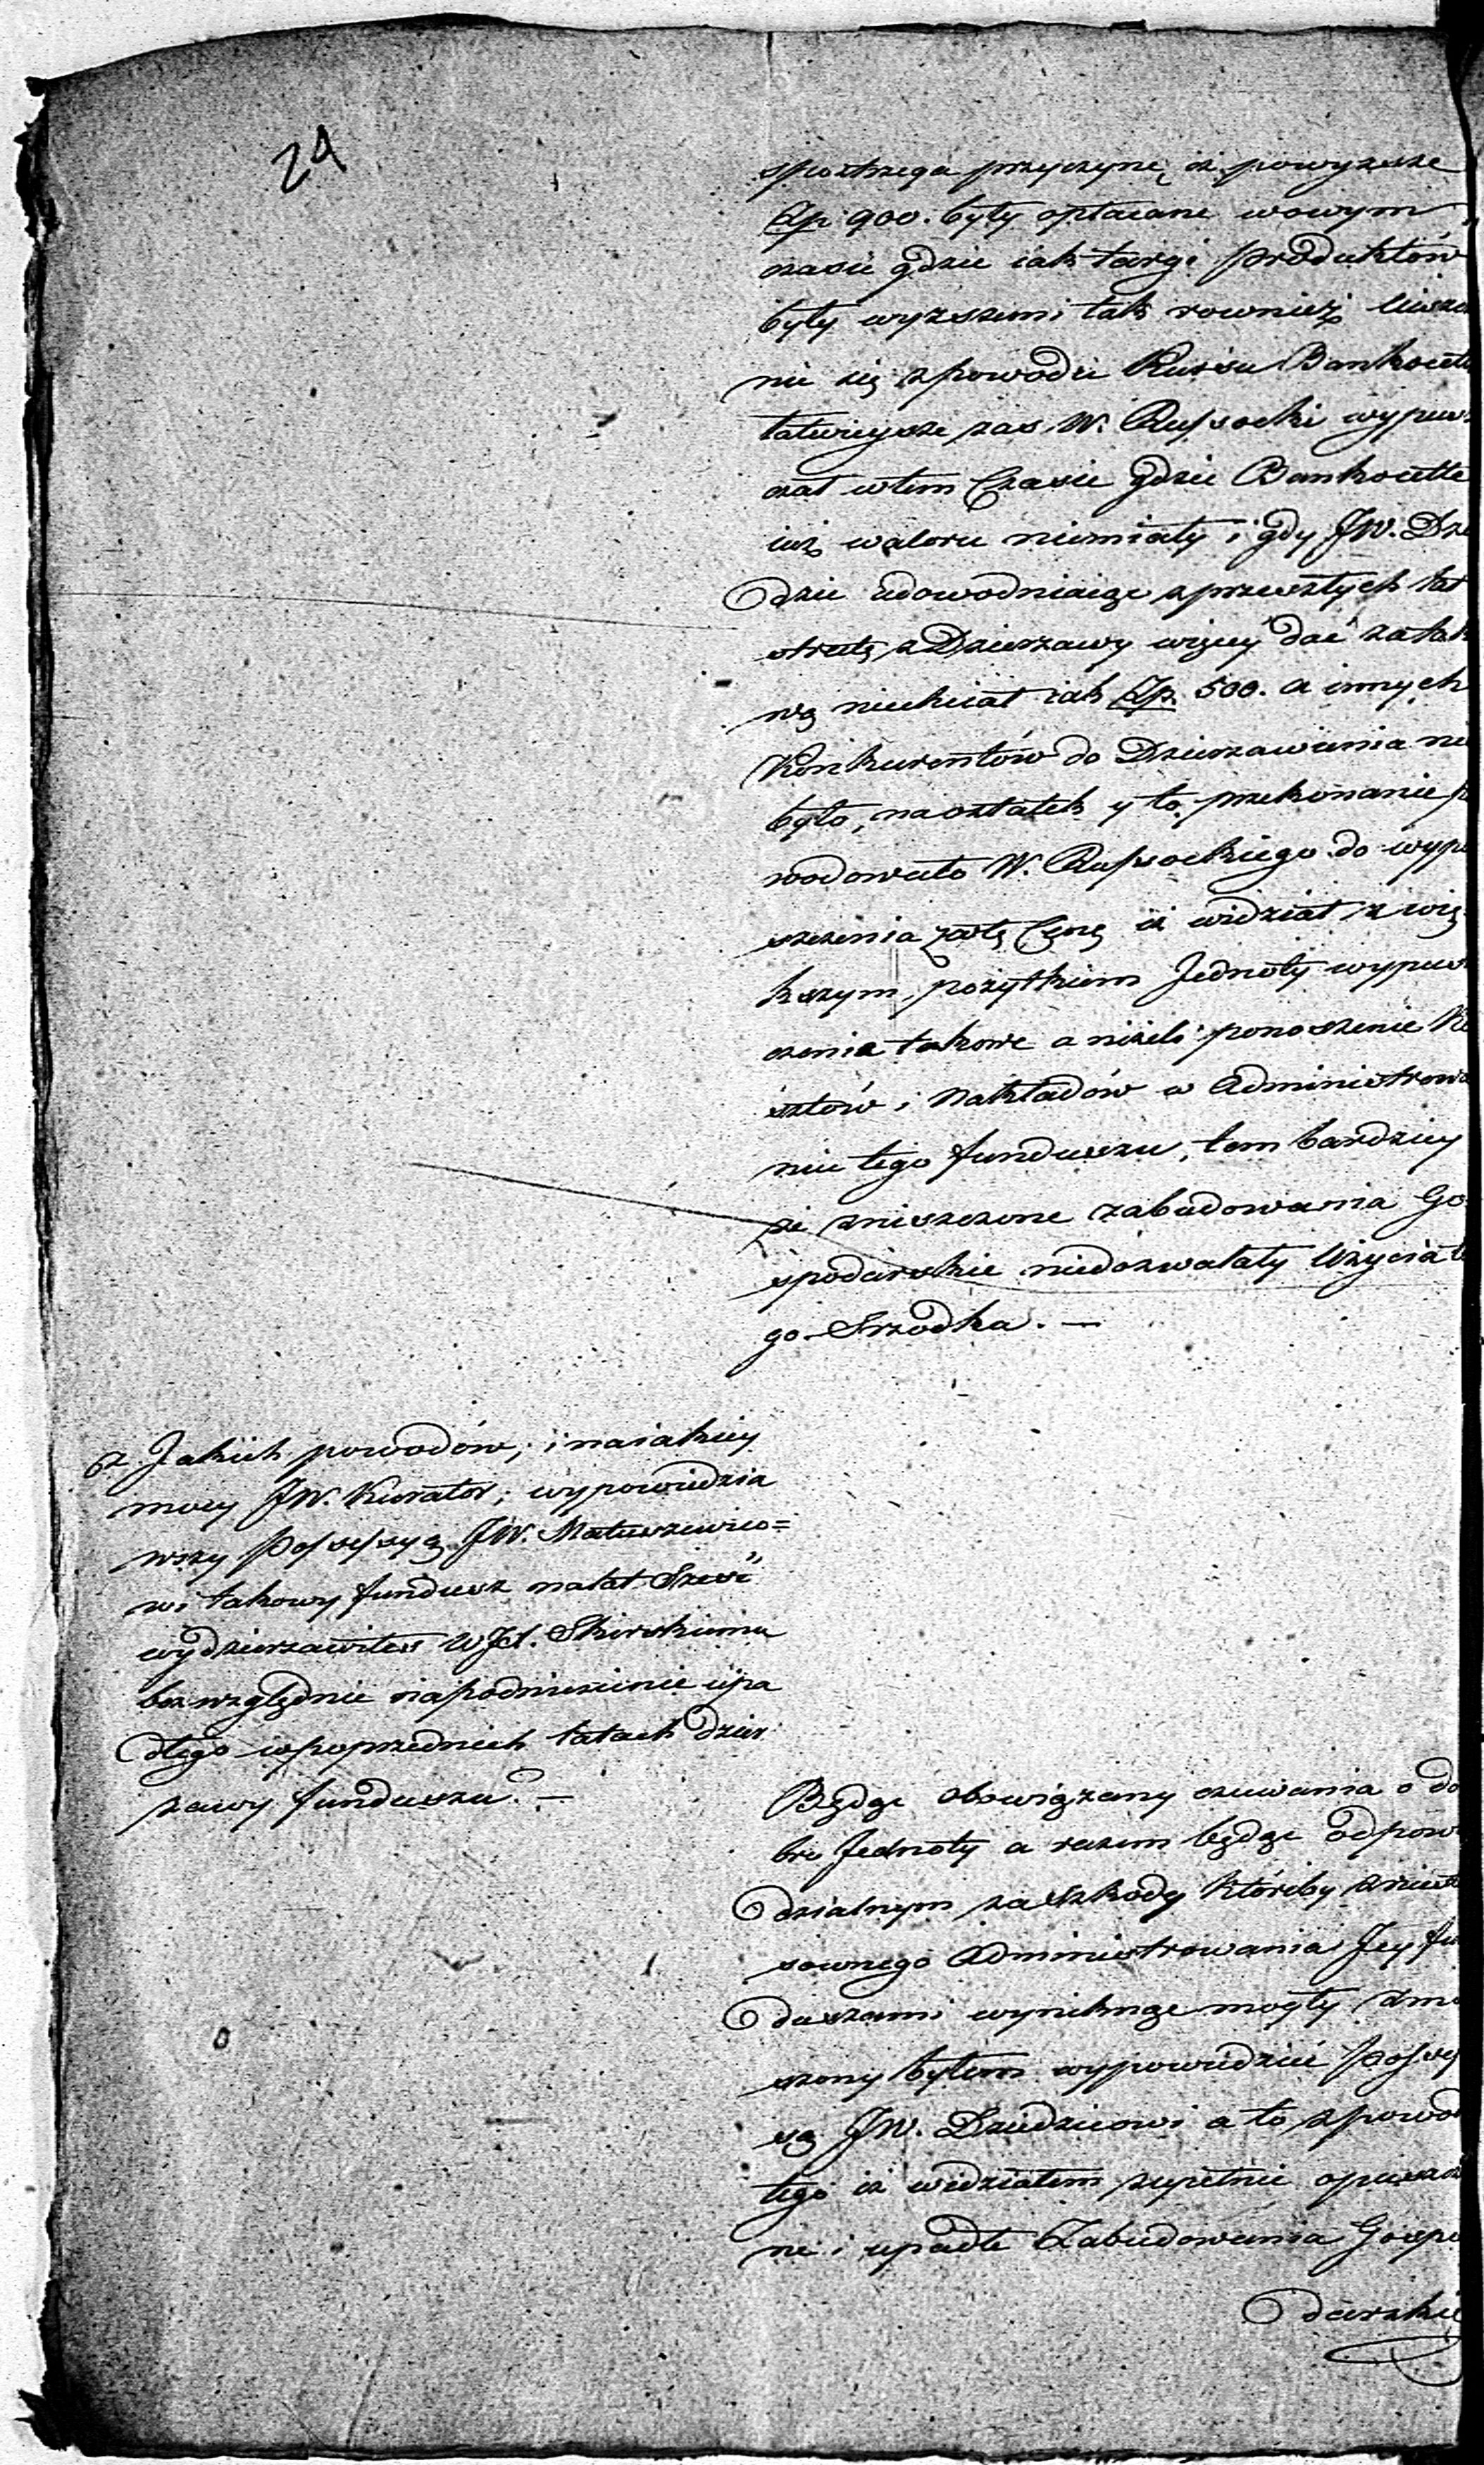 24
spostrzega przyczynę iż powyższe
Złp 900. były opłacane wowym
czasie gdzie iak targi produktów
były wyższemi tak rownież
nie się zpowodu Kursu Bankocetli
łatwieysze zas W. wypusz
czał wtem Czasie gdzie Bankocetle
iuż waloru niemiały i gdy JW. Dzie
dzic udowodniaiąc zprzeszłych lat
stratę z Dzierzawy więcey dać zatak
wą niechciał iak Złp. 500. a innych
Konkurentów do Dzierzawienia nie
było, naostatek y to przekonanie po
wodowało W. do wypu
szczenia zatę Cenę iż widział z wię
kszym pożytkiem Jednoty wypusz
czenia takowe a niżeli ponoszenie Ko
sztów i Nakładów w Administrowa
niu tego funduszu, tem bardziey
że zniszczone zabudowania Go
spodarskie niedozwalały Użycia te
go Srzodka. —
z Jakich powodów; i naiakiey
mocy JW. Kurator; wypowiedzia
wszy Possessyą JW. Matuszewico=
wi takowy fundusz nalat Szesć
wydzierzawiłeś WJX. Skierskiemu
bezwzględnie napodniesienie upa
dłego wpoprzednich latach dzier
zawy funduszu? —
Będąc obowiązany czuwania o do
bro Jednoty a razem będąc odpowie
dzialnym za Szkody któreby zniesto
sownego Administrowania Jey fun
duszami wyniknąc mogły zmu
szony byłem wypowiedzieć Possess
są JW. Dziedzicowi a to zpowodu
tego iż widziałem zupełnie opuszczo
ne i upadłe Zabudowania Gospo
darskie